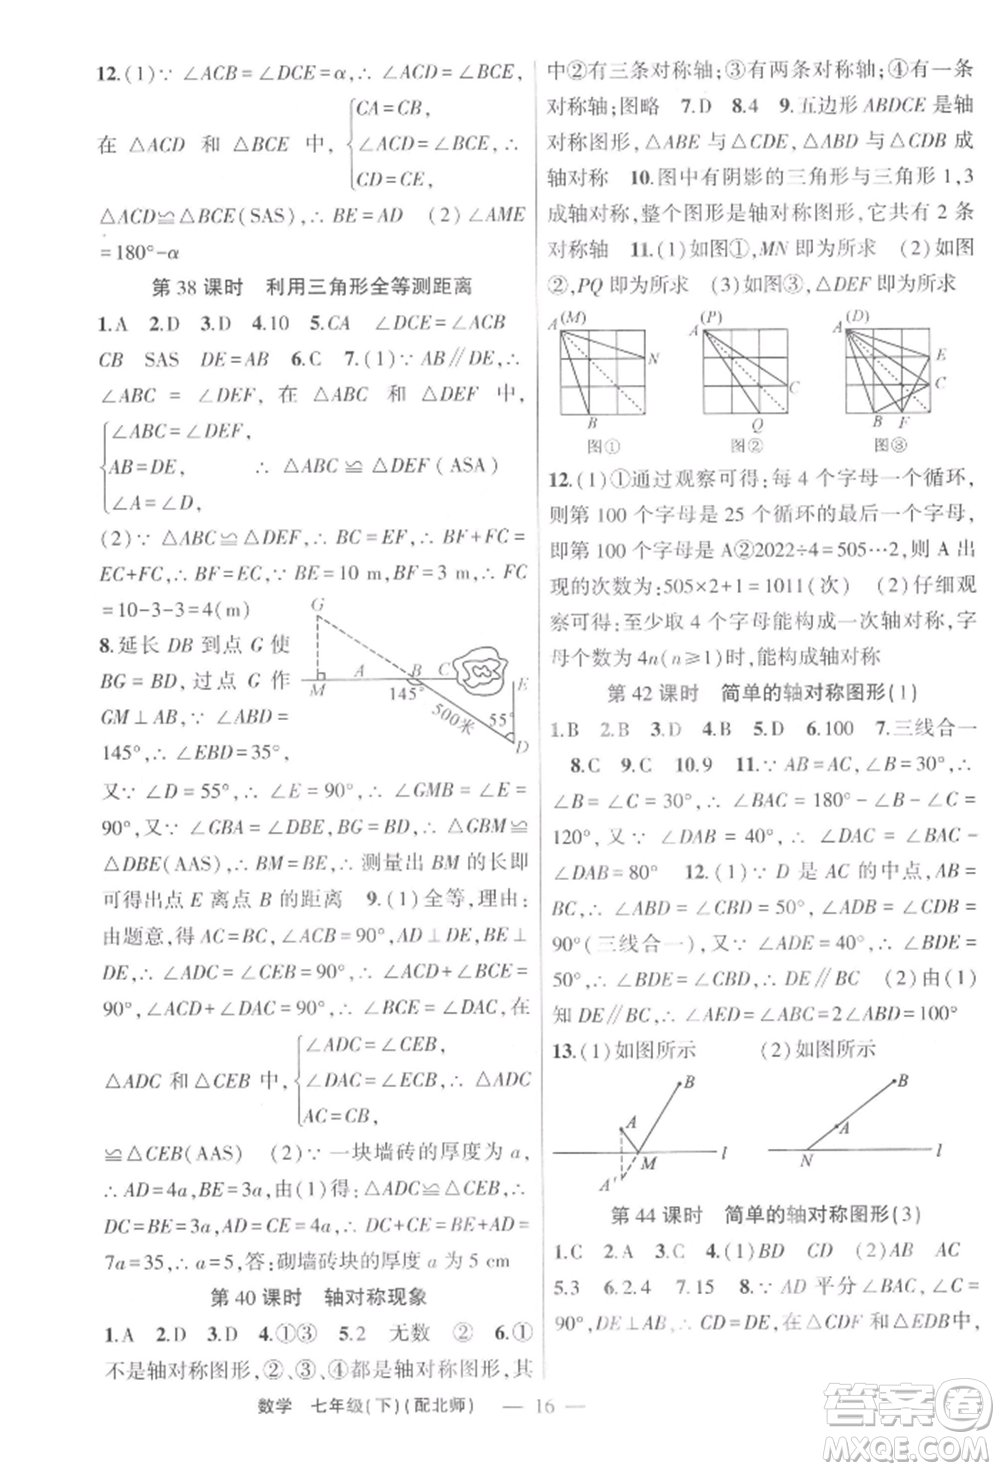 12.(1)∵ ∠ACB=∠DCE=α,∴ ∠ACD=∠BCE,
在 △ACD 和 △BCE 中,
CA=CB,
∠ACD=∠BCE,∴
CD=CE,
△ACD≌△BCE(SAS),∴ BE=AD (2)∠AME
=180°-α
第 38 课时 利用三角形全等测距离
1.A 2.D 3.D 4.10 5.CA ∠DCE=∠ACB
CB SAS DE=AB 6.C 7.(1)∵ AB∥DE,∴
∠ABC = ∠DEF, 在 △ABC 和 △DEF 中,
∠ABC=∠DEF,
AB=DE, ∴ △ABC ≌ △DEF (ASA)
∠A=∠D,
(2)∵ △ABC≌△DEF,∴ BC=EF,∴ BF+FC=
EC+FC,∴ BF=EC∵ BE=10 m,BF=3 m,∴ FC
=10-3-3=4(m)
8.延长 DB 到点 G 使
BG = BD, 过点 G 作
GM⊥AB,∵ ∠ABD=
145°,∴ ∠EBD=35°,
又∵ ∠D=55°,∴ ∠E=90°,∴ ∠GMB=∠E=
90°,又∵ ∠GBA=∠DBE,BG=BD,∴ △GBM≌
△DBE(AAS),∴ BM=BE,∴ 测量出 BM 的长即
可得出点 E 离点 B 的距离 9.(1)全等,理由:
由题意,得 AC=BC,∠ACB=90°,AD⊥DE,BE⊥
DE,∴ ∠ADC=∠CEB=90°,∴ ∠ACD+∠BCE=
90°,∠ACD+∠DAC=90°,∴ ∠BCE=∠DAC,在
△ADC 和 △CEB 中,
∠ADC=∠CEB,
∠DAC=∠BCE,∴ △ADC
AC=CB,
≌△CEB(AAS) (2)∵ 一块墙砖的厚度为 a,
∴ AD=4a,BE=3a,由(1)得:△ADC≌△CEB,∴
DC=BE=3a,AD=CE=4a,∴ DC+CE=BE+AD=
7a=35,∴ a=5,答:砌墙砖块的厚度 a 为 5 cm
第 40 课时 轴对称现象
1.A 2.D 3.D 4.①③ 5.2 无数 ② 6.①
不是轴对称图形,②、③、④都是轴对称图形,其
G
M A B C E
145° 500米 55° D
中②有三条对称轴;③有两条对称轴;④有一条
对称轴;图略 7.D 8.4 9.五边形 ABDCE 是轴
对称图形,△ABE 与△CDE,△ABD 与△CDB 成
轴对称 10.图中有阴影的三角形与三角形 1,3
成轴对称,整个图形是轴对称图形,它共有 2 条
对称轴 11.(1)如图①,MN 即为所求 (2)如图
②,PQ 即为所求 (3)如图③,△DEF 即为所求
A (M) N B
A (P) C Q
A (D) E C B F
图① 图② 图③
12.(1)①通过观察可得:每 4 个字母一个循环,
则第 100 个字母是 25 个循环的最后一个字母,
即第 100 个字母是 A②2022÷4=505…2,则 A 出
现的次数为:505×2+1=1011(次) (2)仔细观
察可得:至少取 4 个字母能构成一次轴对称,字
母个数为 4n(n≥1)时,能构成轴对称
第 42 课时 简单的轴对称图形(1)
1.B 2.B 3.D 4.B 5.D 6.100 7.三线合一
8.C 9.C 10.9 11.∵ AB=AC,∠B=30°,∴
∠B=∠C=30°,∴ ∠BAC=180°-∠B-∠C=
120°,又∵ ∠DAB=40°,∴ ∠DAC=∠BAC-
∠DAB=80° 12.(1)∵ D 是 AC 的中点,AB=
BC,∴ ∠ABD=∠CBD=50°,∠ADB=∠CDB=
90°(三线合一),又∵ ∠ADE=40°,∴ ∠BDE=
50°,∴ ∠BDE=∠CBD,∴ DE∥BC (2)由(1)
知 DE∥BC,∴ ∠AED=∠ABC=2∠ABD=100°
13.(1)如图所示 (2)如图所示
B A M l A′
B A N l
第 44 课时 简单的轴对称图形(3)
1.C 2.A 3.A 4.(1)BD CD (2)BD AC
5.3 6.2.4 7.15 8.∵ AD 平分∠BAC,∠C=
90°,DE⊥AB,∴ CD=DE,在△CDF 和△EDB中,
数学 七年级(下)(配北师) — 16 —
答案圈
MXQE.COM